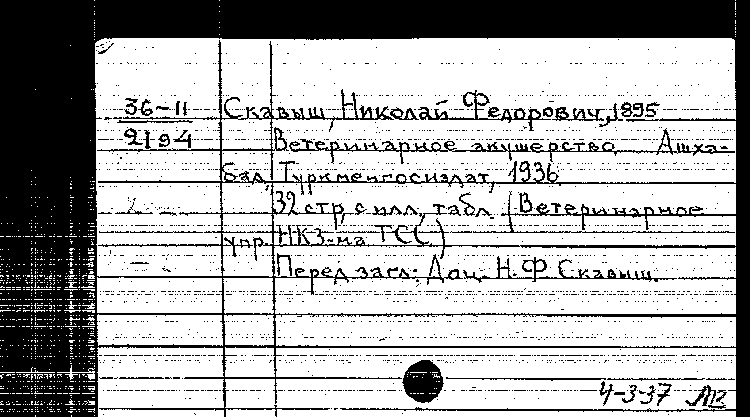 36-11 Скавыш, Николай Федорович, 1895
2194 Ветеринарное акушерство. Ашха-
бад, Туркменгосиздат, 1936.
32 стр, с илл, табл. (Ветеринарное
упр. НКЗ-ма ТСС)
Перед загл: Доц. Н.Ф. Скавыш.
4-3-37